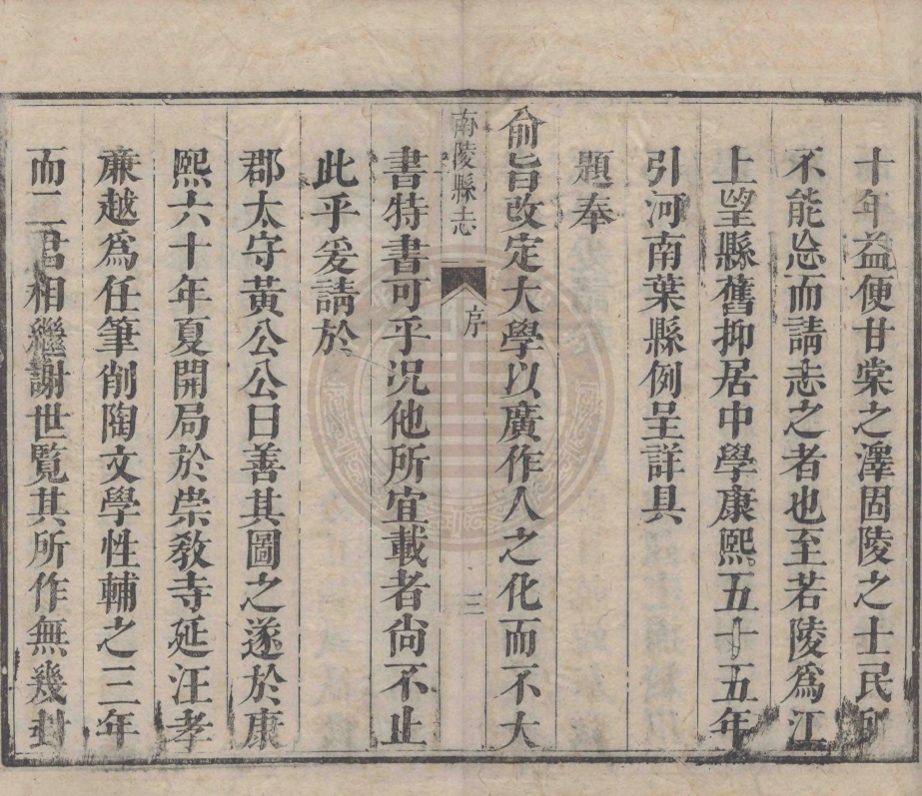 十年益便甘棠之澤固陵之士民所
不能忘而請志之者也至若陵為江
上望縣舊抑居中學康熙五十五年
引河南葉縣例呈詳具
題奉
俞旨改定大學以廣作人之化而不大
南陵縣志 序 三
書特書可乎況他所宜載者尚不止
此乎爰請於
郡太守黃公公曰善其圖之遂於康
熙六十年夏開局於崇敎寺延汪孝
廉越為任筆削陶文學性輔之三年
而二君相繼謝世覧其所作無幾